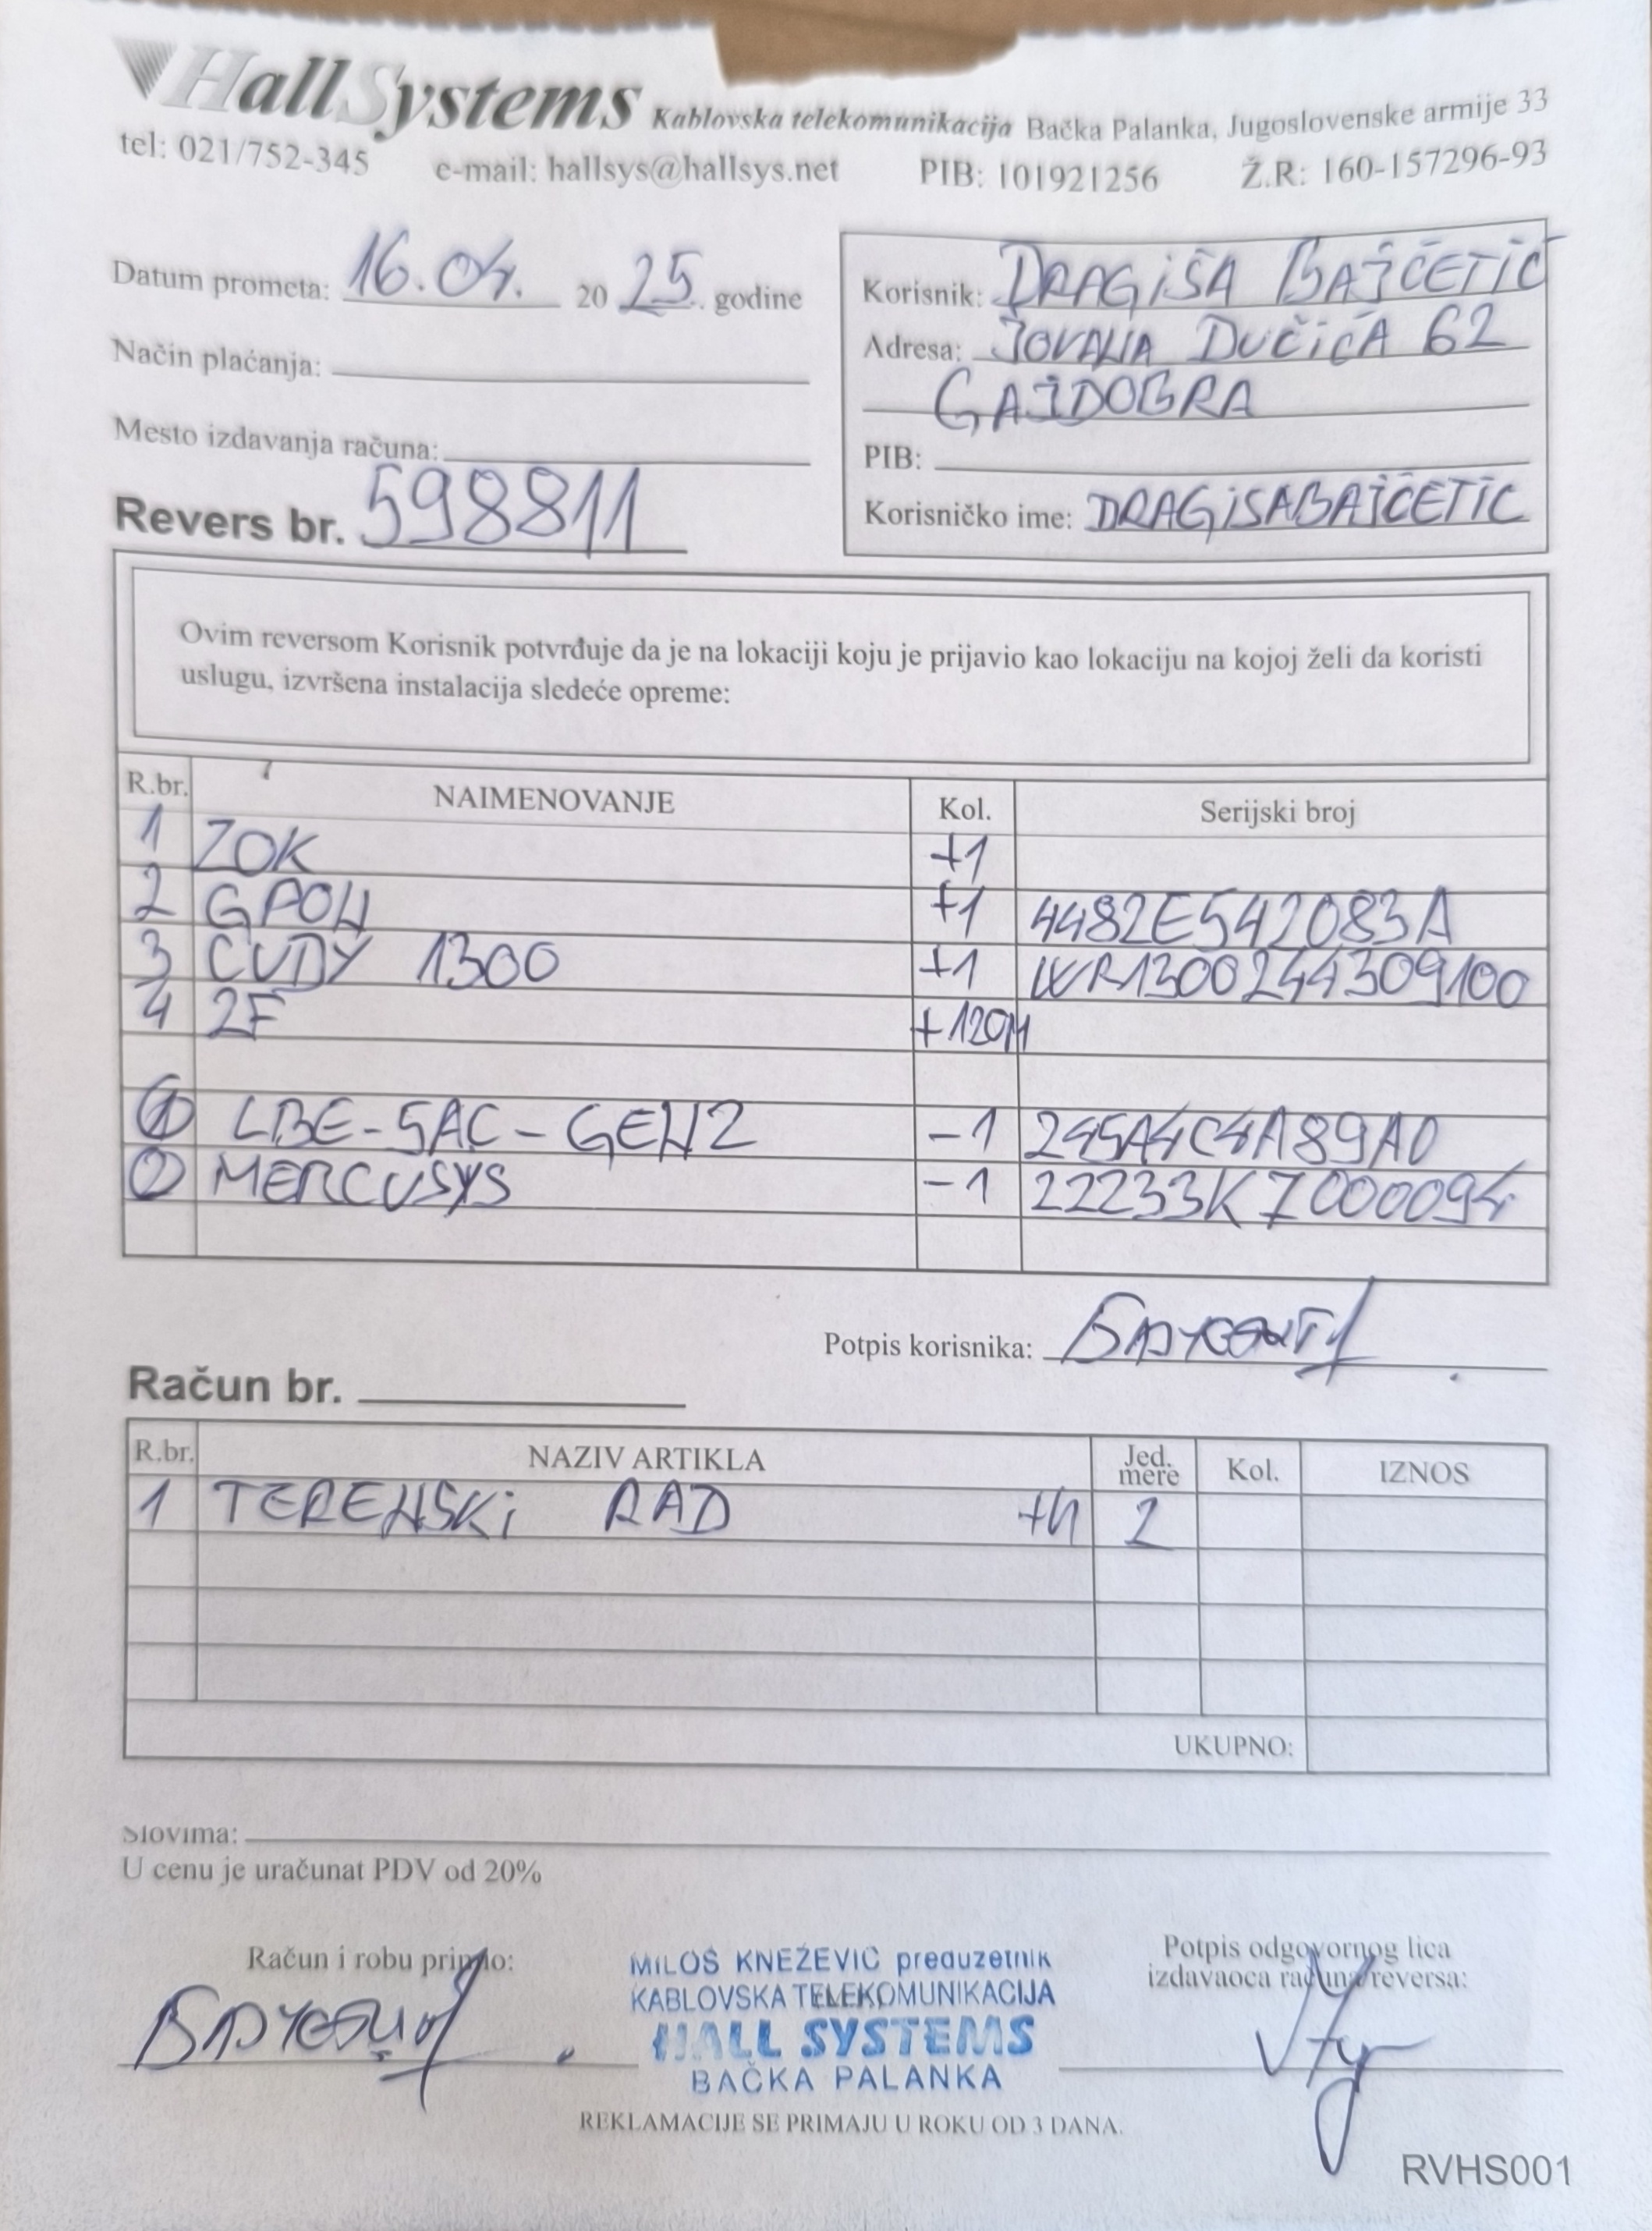 Hall Systems Kablovska telekomunikacija Bačka Palanka, Jugoslovenske armije 33
tel: 021/752-345 e-mail: hallsys@hallsys.net PIB: 101921256 Ž.R: 160-157296-93
Datum prometa: 16.04. 2025. godine
Način plaćanja:
Mesto izdavanja računa:
Revers br. 598811
Korisnik: DRAGIŠA BAJČETIĆ
Adresa: JOVANA DUČIĆA 62
GAJDOBRA
PIB:
Korisničko ime: DRAGISABAJCETIC
Ovim reversom Korisnik potvrđuje da je na lokaciji koju je prijavio kao lokaciju na kojoj želi da koristi
uslugu, izvršena instalacija sledeće opreme:
R.br. NAIMENOVANJE Kol. Serijski broj
1 ZOK +1
2 GPON +1 4482E542083A
3 CUDY 1300 +1 WR1300244309100
4 2F +120M
1 LBE-5AC-GEN2 -1 245A4C4A89A0
2 MERCUSYS -1 22233K7000094
Potpis korisnika:
Račun br.
R.br. NAZIV ARTIKLA Jed. mere Kol. IZNOS
1 TERENSKI RAD 2
UKUPNO:
Slovima:
U cenu je uračunat PDV od 20%
Račun i robu primio:
MILOŠ KNEŽEVIĆ preduzetnik
KABLOVSKA TELEKOMUNIKACIJA
HALL SYSTEMS
BAČKA PALANKA
Potpis odgovornog lica
izdavaoca računa/reversa:
REKLAMACIJE SE PRIMAJU U ROKU OD 3 DANA.
RVHS001